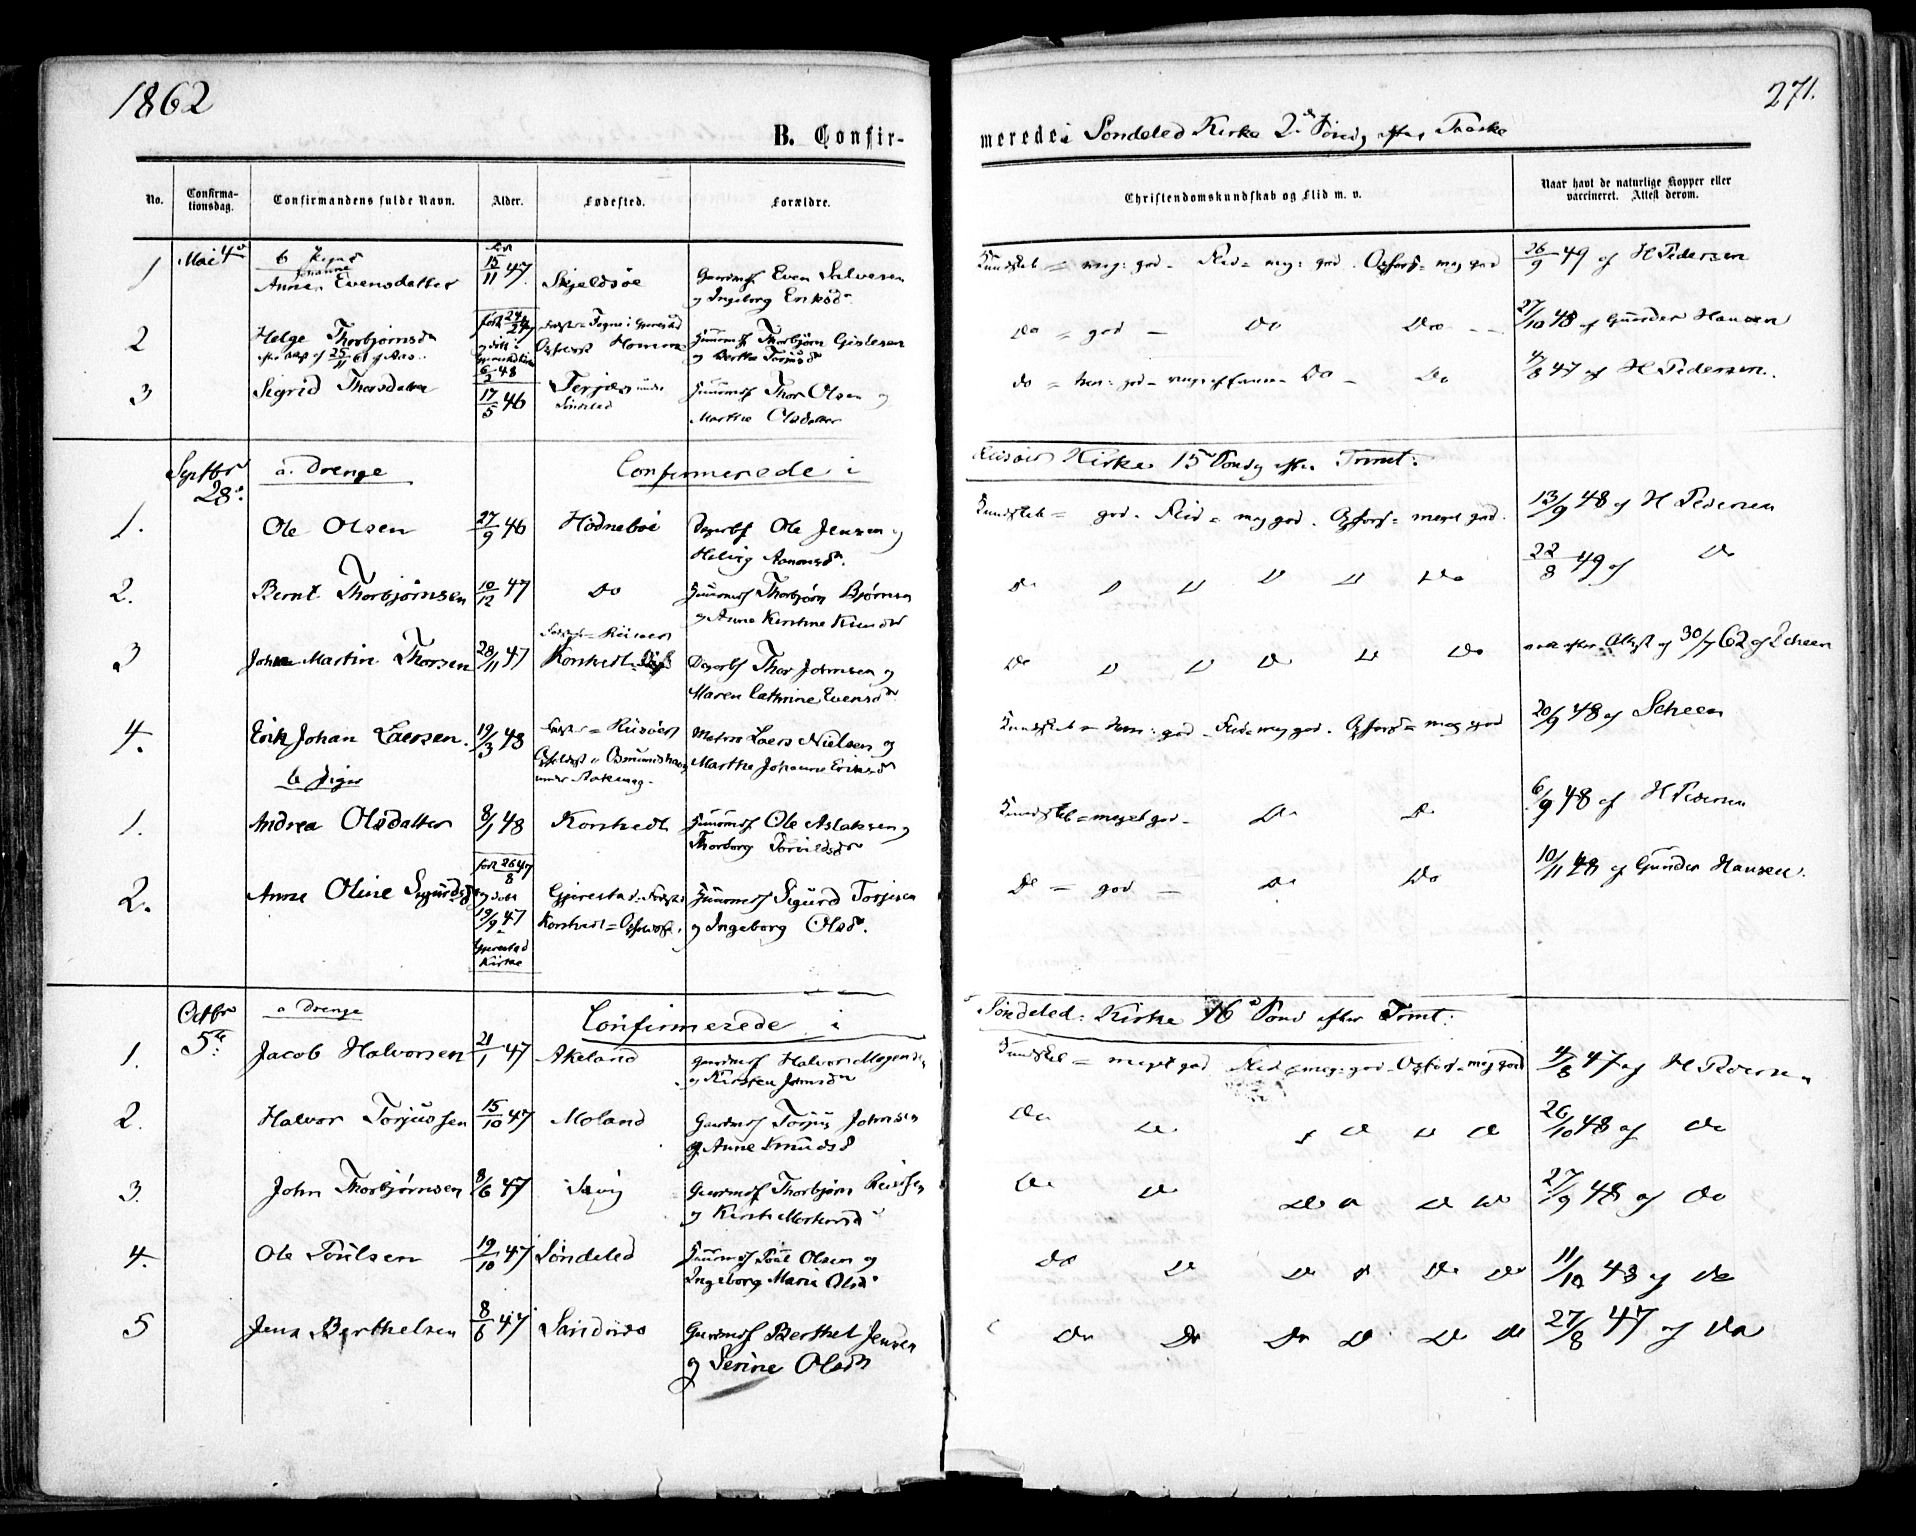 1862
271.
B. Confir-
merede i Söndeled Kirke 2den Sönd. efter Paaske
No. Confirma-tionsdag. Confirmandens fulde Navn. Alder. Fødested. Forældre. Christendomskundskab og Flid m. v. Naar havt de naturlige Kopper eller vaccineret. Attest derom.
Mai 4de b Piger
1 Anne Johanne Evensdatter 15/11 47 Skjeldsöe Gaardmf. Even Salvesen og Ingeborg Eriksd. Kundskab = meg: god - Flid = meg: god . Opförs = meg god 26/9 49 af H Pedersen
2 Helge Thorbjörnsd Thorbjörn Gislesen og Berthe Do = god - Do Do 27/10 48 af Gunder Hansen
3 Sigrid Thorsdatter 17/5 46 under Söndeled Huusmf Thor Olsen og Marthe Olsdatter do = Do - Do 4/8 47 af H Pedersen.
Septbr 28de. a. Drenge Confirmerede i Riisöer Kirke 15de Sönd efter Trinit:
1. Ole Olsen 27/9 46 Hödneböe Ole Jensen og Helvig Aanonsd. Kundskab = god - Flid = meg god . Opförs = meget god. 13/9 48 af H Pedersen
2. Bernt Thorbjörnsen 10/12 47 Do Huusmf Thorbjörn Björnsen og Anne Kirstine Knudsd Do Do 22/8 49 af Do
3 Johan Martin Thorsen 28/11 47 Korshedt Thor Johnsen og Maren Cathrine Evensd. Do Do Do 30/7 62 af Scheen
4. Erik Johan Laersen. 19/3 48 Födst = Riisöer Laers Nielsen og Marthe Johanne Eriksd Kundskab = god - Flid = meg god . Opförs = meg god 20/9 48 af Scheen
b Piger
1. Andrea Olsdatter 8/1 48 Korshedt Huusmf Ole Aslaksen og Thorborg Kundskab = meget god - Do Do 6/9 48 af H Pedersen
2. Anne Oline Sigurdsd 26/8 47 og döbt 19/9 47 i Gjerestad Kirke Gjerestad = Födst Korshedt = Huusmf Sigurd Torjusen og Ingeborg Olsd. Do - god - Do Do 10/11 48 af Gunder Hansen.
Octbr 5te. a Drenge Confirmerede i Söndeled: Kirke 16de Sönd efter Trinit:
1. Jacob Halvorsen 21/1 47 Akeland Gaardmf Halvor Mogensen og Kirsten Jonsd Kundskab = meget god Flid = meg: god - Opförs = meg god 4/8 47 af H Pedersen
2. Halvor Torjussen 15/10 47 Moland Gaardmf Torjus Johnsen og Anne Knudsd Do Do Do 26/10 48 af Do
3. John Thorbjörnsen 8/6 47 Gaardmf Thorbjörn og Kirsti Do Do Do Do 27/9 48 af Do
4. Ole Poulsen 19/10 47 Söndeled Huusmf Poul Olsen og Ingeborg Marie Olsd. Do Do Do Do Do 11/10 48 af Do
5 Jens Berthelsen 8/6 47 Sandnæs Gaardmf Berthel Jensen og Serine Olsd Do Do Do Do Do Do 27/8 47 af Do